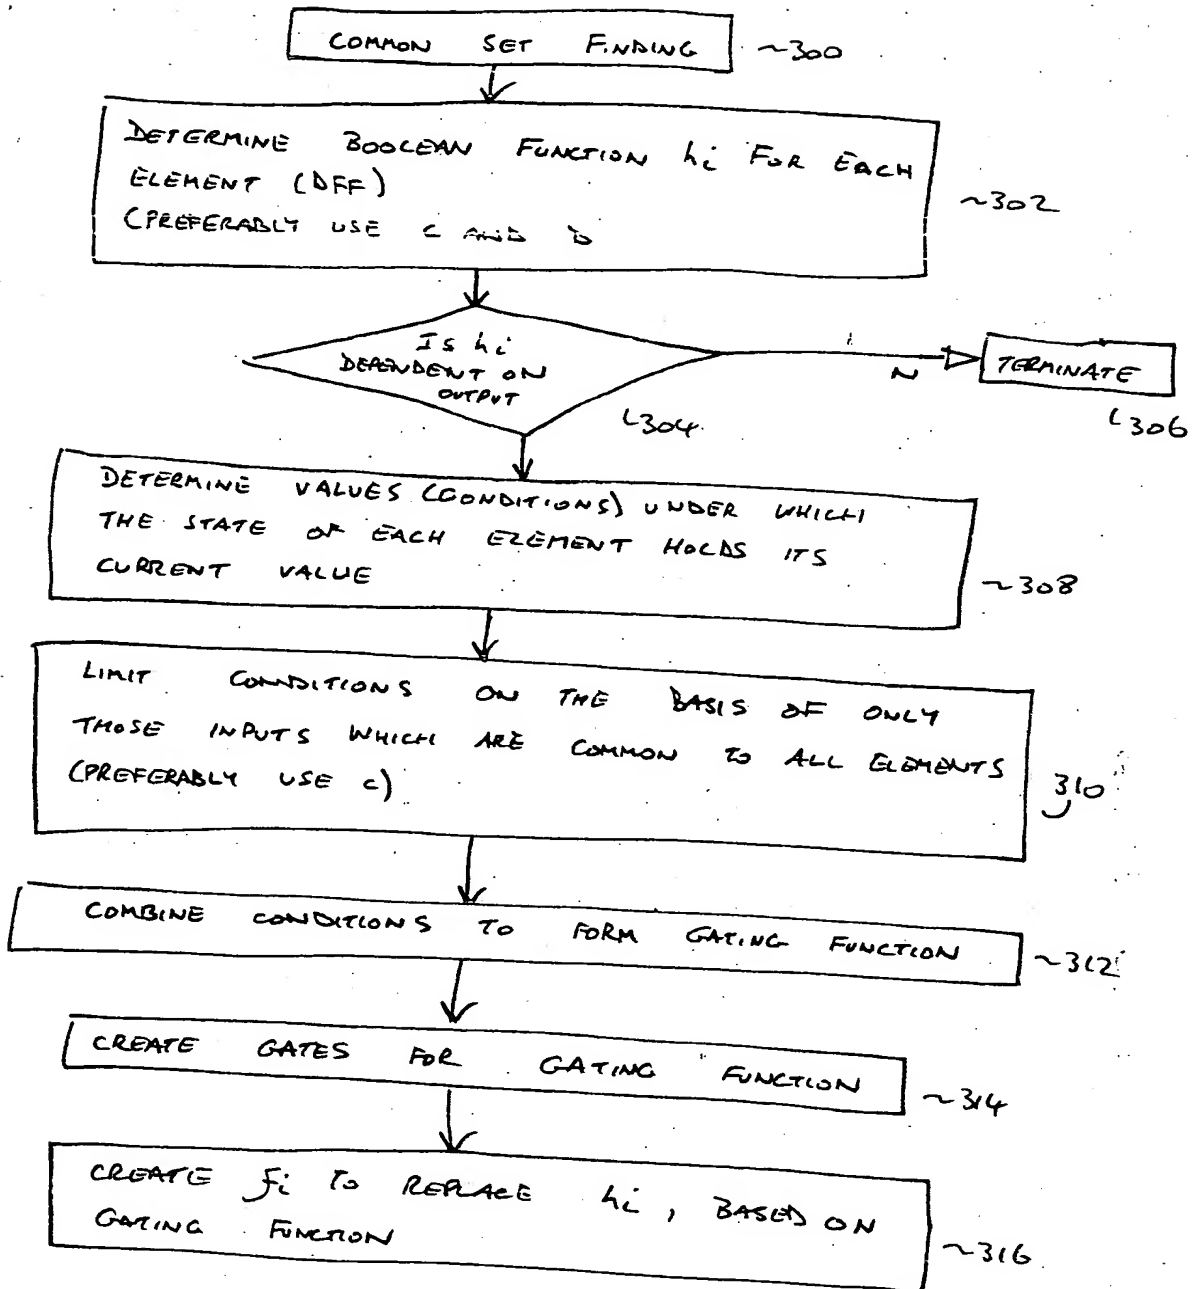 COMMON SET FINDING ~300
DETERMINE BOOLEAN FUNCTION hi FOR EACH
ELEMENT (DFF)
(PREFERABLY USE C AND D
~302
Is hi
DEPENDENT ON
OUTPUT
304
N
TERMINATE
306
DETERMINE VALUES (CONDITIONS) UNDER WHICH
THE STATE OF EACH ELEMENT HOLDS ITS
CURRENT VALUE
~308
LIMIT CONDITIONS ON THE BASIS OF ONLY
THOSE INPUTS WHICH ARE COMMON TO ALL ELEMENTS
(PREFERABLY USE C)
310
COMBINE CONDITIONS TO FORM GATING FUNCTION ~312
CREATE GATES FOR GATING FUNCTION ~314
CREATE fi TO REPLACE hi, BASED ON
GATING FUNCTION
~316